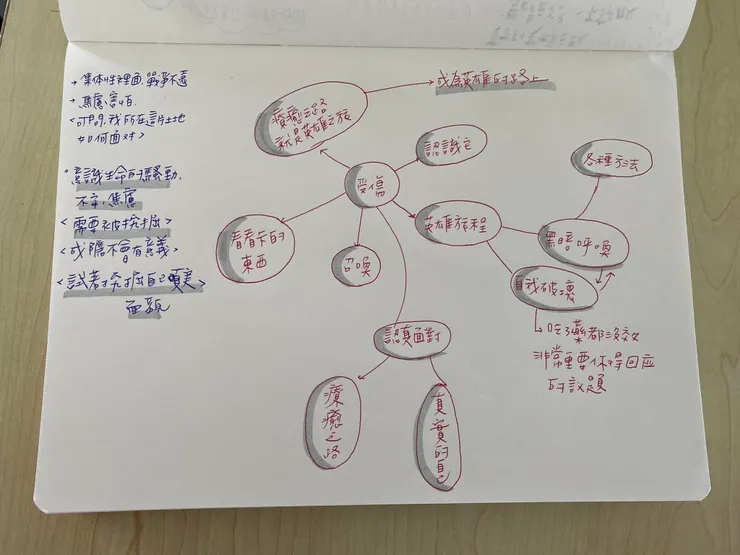 → 集体性裡面,戰爭不遠
→ 焦慮.害怕.
如何面對>
意識生命的騷動.
不安.焦慮
<需要被挖掘>
<成膽不會有意義>
<試著挖掘自己真实
面貌
療癒之路
就是英雄之旅
成為英雄的路上
認識它
受傷
看看卡的
東西
召喚
英雄旅程
各種方法
黑暗呼喚
自我破壞
吃藥都沒效
非常重要你得回应
的議題
認真面對
療癒之路
真實的自己